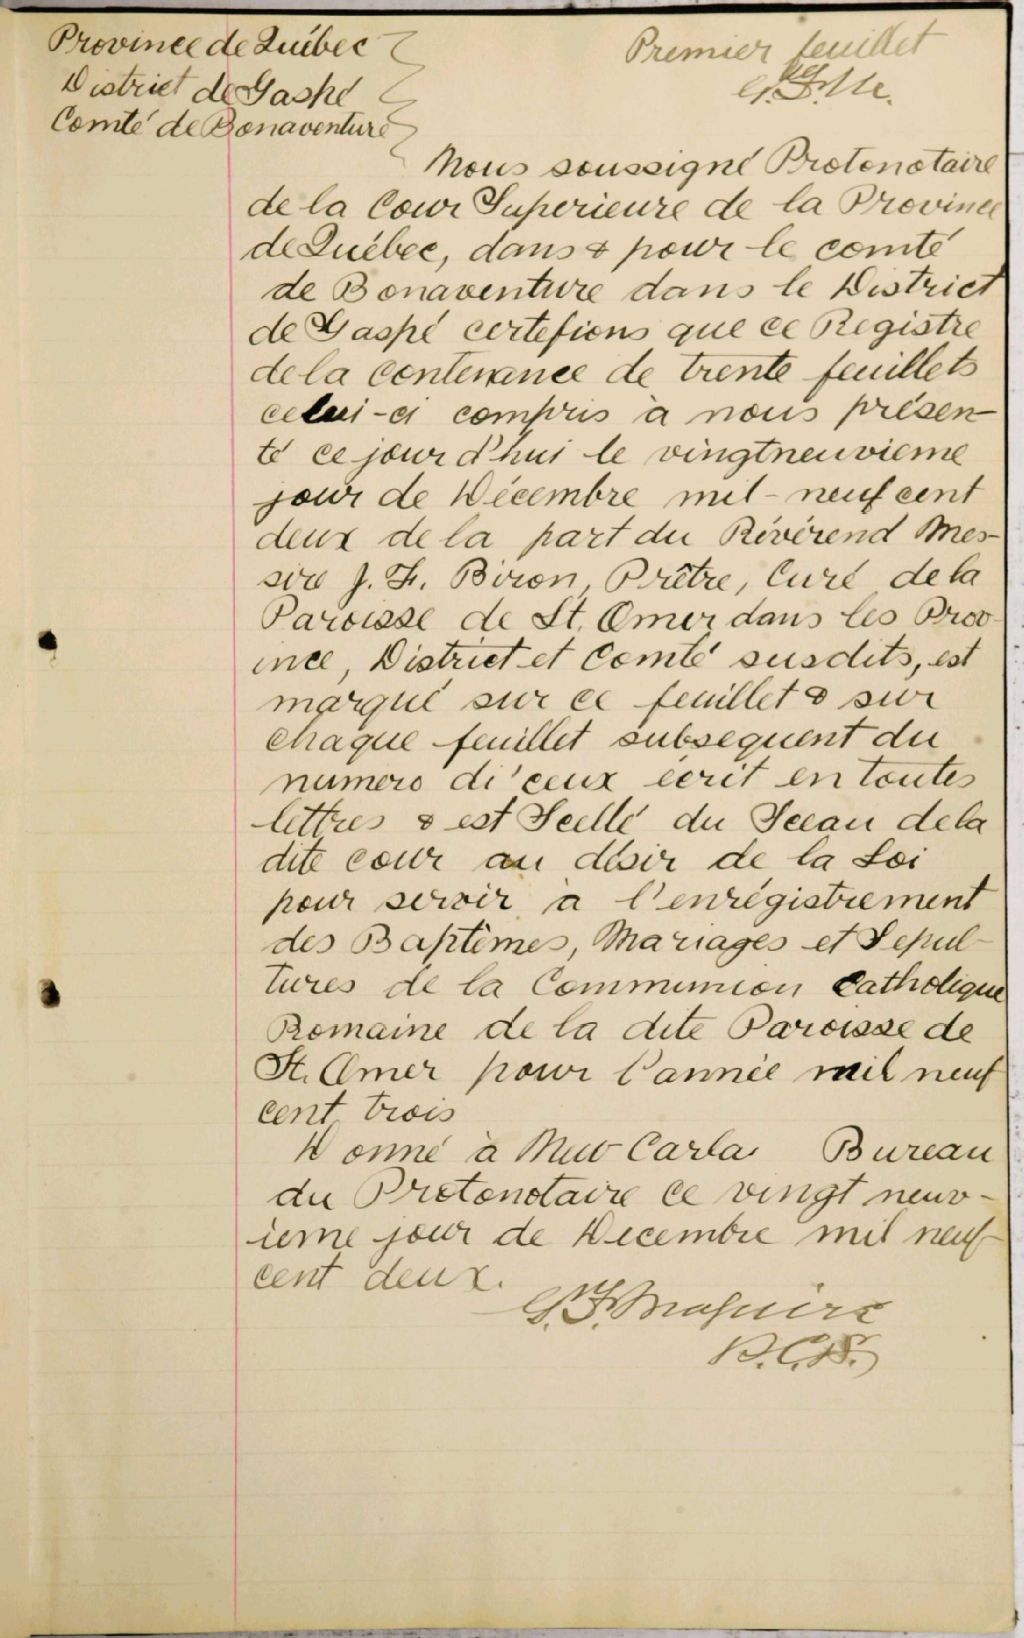 Province de Québec
District de Gaspé
Comté de Bonaventure
Premier feuillet
Nous soussigné Protonotaire
de la Cour Superieure de la Province
de Québec, dans & pour le comté
de Bonaventure dans le District
de Gaspé certefions que ce Registre
de la contenance de trente feuillets
celui-ci compris à nous présen-
té ce jour d'hui le vingtneuvieme
jour de Décembre mil-neuf cent
deux de la part du Révérend Mes-
sire J. F. Biron, Prêtre, Curé de la
Paroisse de St. Omer dans les Prov-
ince, District et Comté susdits, est
marqué sur ce feuillet & sur
chaque feuillet subsequent du
numero di'ceux écrit en toutes
lettres & est Scellé du Sceau de la
dite cour au désir de la Loi
pour servir à l'enrégistrement
des Baptêmes, Mariages et Sepul-
tures de la Communion Catholique
Romaine de la dite Paroisse de
St. Omer pour l'année mil neuf
cent trois
Donné à New Carla Bureau
du Protonotaire ce vingt neuv-
ieme jour de Decembre mil neuf
cent deux.
Maguire